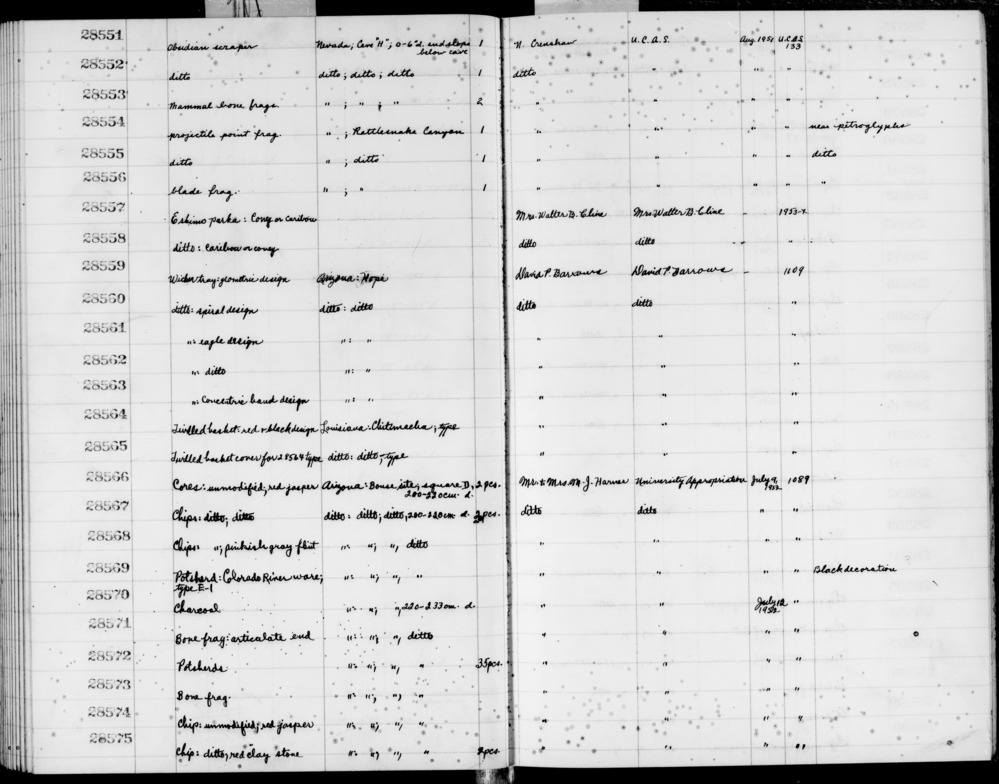 28551 Obsidian scraper Nevada; Cave "H"; 0-6"d. end slope 1 N. Crenshaw U.C.A.S. Aug 1951 U.C.A.S.
below cave 133
28552 ditto ditto; ditto; ditto 1 ditto " " "
28553 Mammal bone frags " ; " ; " 2 " " " "
28554 projectile point frag. " ; Rattlesnake Canyon 1 " " " " near petroglyphs
28555 ditto " ; ditto 1 " " " " ditto
28556 blade frag. " ; " 1 " " " " "
28557 Eskimo parka: Cony or caribou Mrs. Walter B. Cline Mrs Walter B. Cline – 1953-4.
28558 ditto: caribou or cony ditto ditto – "
28559 Wicker tray: geometric design Arizona: Hopi David P. Barrows David P. Barrows – 1109
28560 ditto: spiral design ditto: ditto ditto ditto "
28561 ": eagle design ": " " " "
28562 ": ditto ": " " " "
28563 ": Concentric band design ": " " " "
28564 Twilled basket: red & black design Louisiana: Chitimacha; type " " "
28565 Twilled basket cover for 28564 type ditto: ditto; type " " "
28566 Cores: unmodified; red jasper Arizona: Bouse site, square D, 2 pcs. Mr. & Mrs. M. J. Harner University Appropriation July 9, 1089
200-220cm. d. 1952
28567 Chips: ditto; ditto ditto: ditto; ditto, 200-220cm. d. pcs. ditto ditto " "
28568 Chips: "; pinkish gray flint ": "; ", ditto " " " "
28569 Potsherd: Colorado River ware; ": "; ", " " " " " Black decoration
type E-1
28570 Charcoal ": "; ", 220-233cm. d. " " July 12 "
1952
28571 Bone frag: articulate end ": "; ", ditto " " " "
28572 Potsherds ": "; ", " 35pcs. " " " "
28573 Bone frag. ": "; ", " " " " "
28574 Chip: unmodified; red jasper ": "; ", " " " " "
28575 Chip: ditto; red clay stone ": "; ", " 2pcs. " " " "